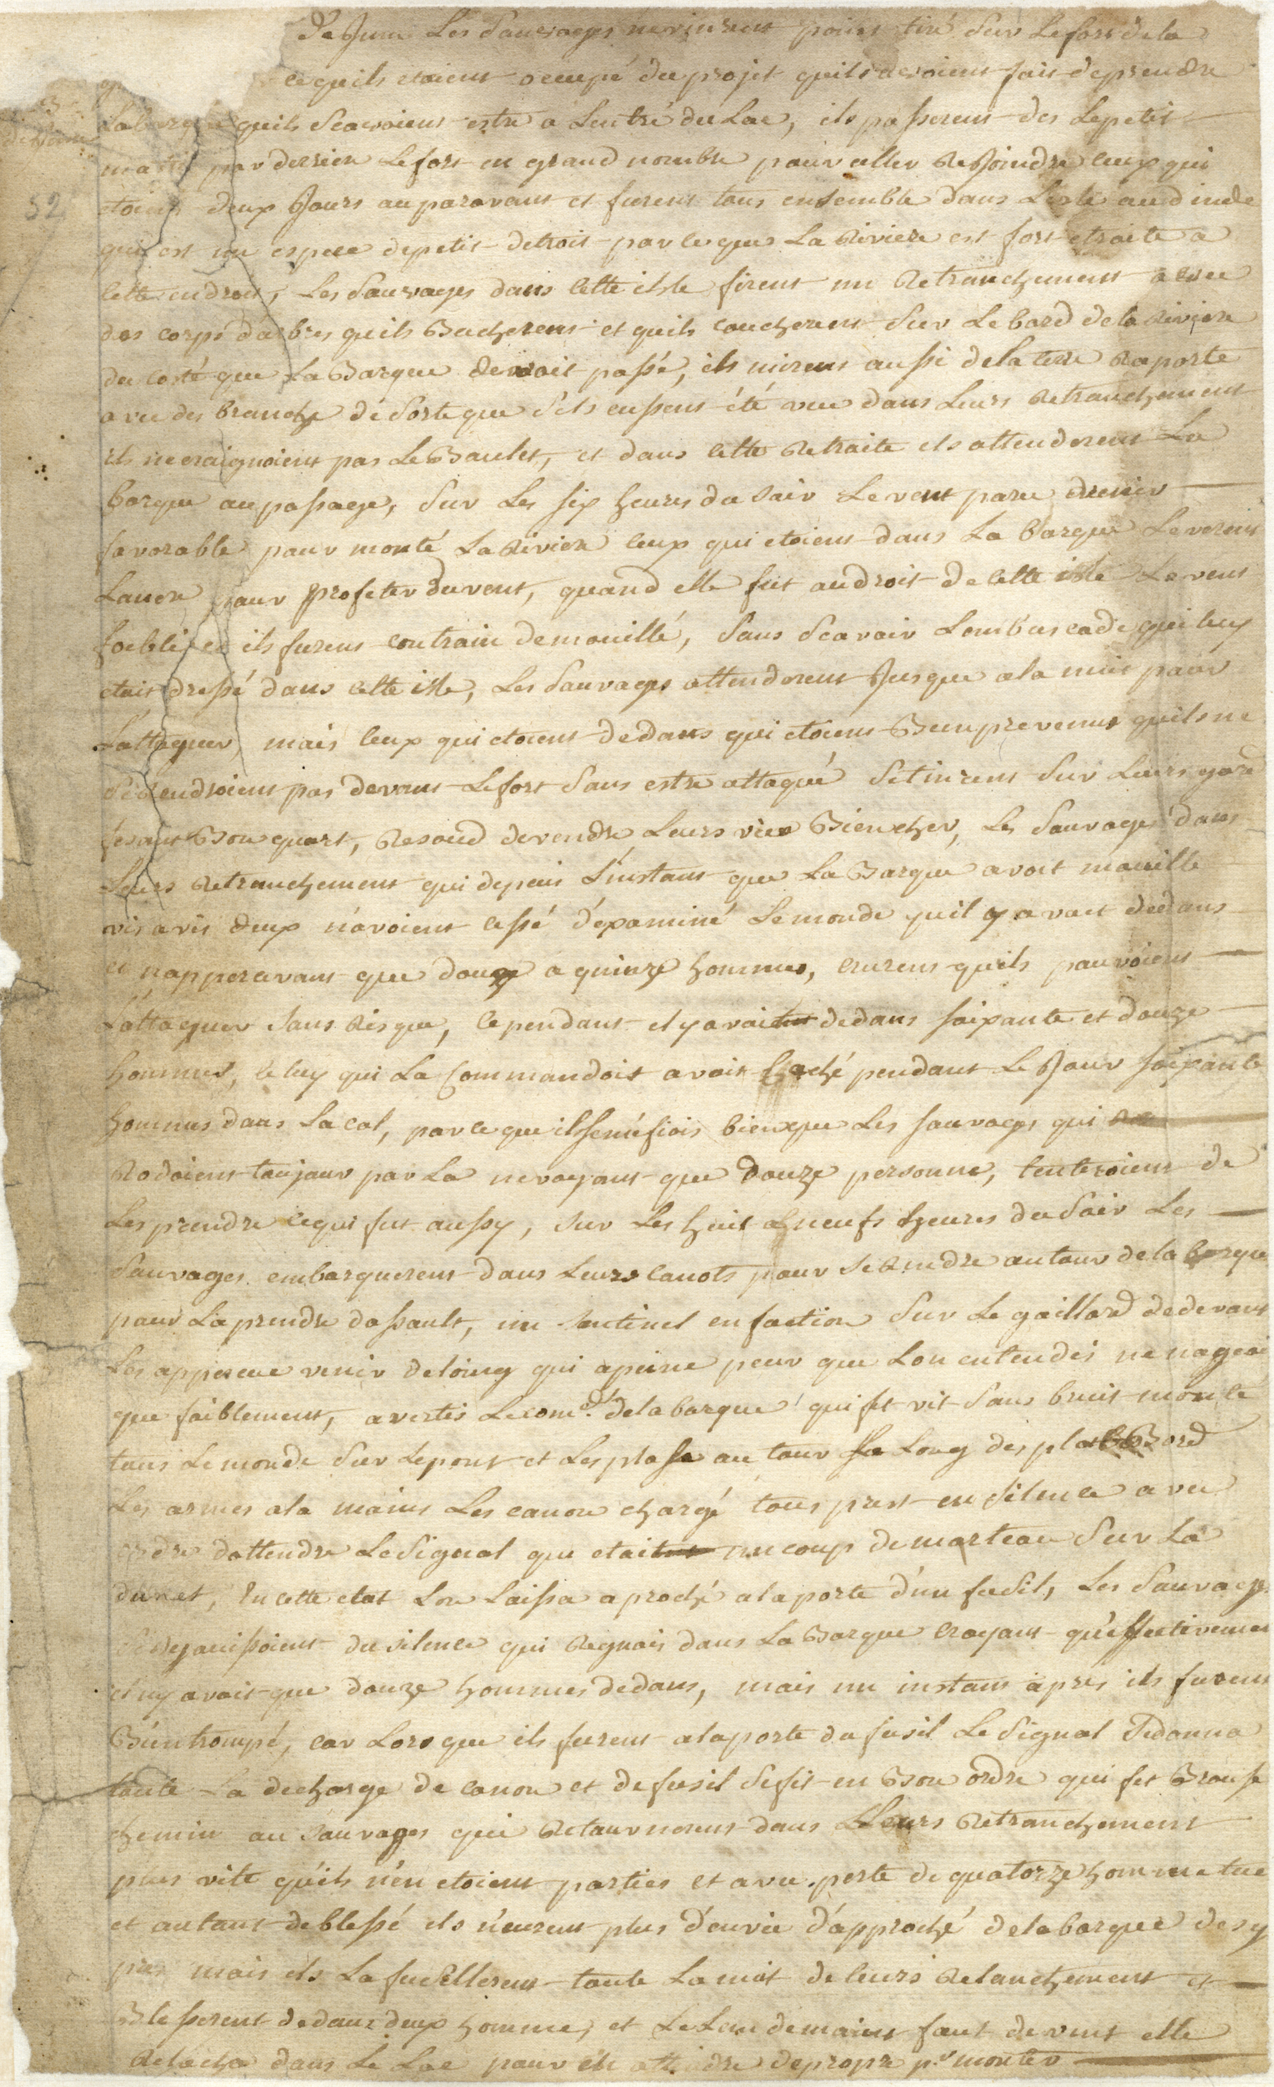 de Juin Les Sauvages ne vinrent point tiré Sur Le fort de la
ce quils etoient occupé du projet quils avoient fait de prendre
La barque quils Scavoient estre a Lentré du Lac, ils passerent des Le petit
matin par derrier Le fort en grand nombre pour aller Rejoindre ceux qui
etoient deux Jours auparavant et furent tous ensemble dans Lisle au d'inde
qui est un espece de petit detroit par lequel La Riviere est fort etroite a
cette endroit, Les Sauvages dans cette isle firent un Retranchement avec
des corps d'arbres quils Bucherent et quils coucherent Sur Le bord de la Riviere
du costé que La Barque devoit passé, ils mirent aussi de la terre Raporte
avec des branche dé Sorte que S'ils eussent été vue dans Leurs Retranchement
ils ne craignoient pas Le Boulet, et dans cette Retraite ils attenderent La
barque au passage, Sur Les six heures du Soir Le vent paru devenir
favorable pour monté La Riviere ceux qui etoient dans La barque Leverent
Lancre pour profeter du vent, quand elle fut audroit de cette isle Le vent
foibli et ils furent contrain de mouillé, Sans Scavoir Lembuscade qui luy
etoit dressé dans cette isle, Les Sauvages attenderent Jusque a la nuit pour
L'attaquer, mais ceux qui etoient dedans qui etoient Bien prevenus quils ne
Se rendroient pas devant Le fort Sans estre attaqué Se tinrent Sur Leurs garde
fesant Bon quart, Resoud de vendre Leurs vies Bien cher, Les Sauvages dans
Leurs Retranchement qui depuis L'instant que La Barque avoit mouillé
vis a vis d'eux n'avoient cessé d'examiné Le monde quil y avoit dedans
et n'appercevant que douze a quinze hommes, crurent quils pouvoient
L'attaquer Sans Risque, cependant il y avoit dedans soixante et douze
hommes, celuy qui La Commandoit avoit Caché pendant Le Jour soixante
hommes dans La cal, parce que il semefiois bien que Les sauvages qui
Rodoient toujour par La ne voyant que douze personne, tenteroient de
Les prendre ce qui fut aussy, sur Les huit a neufs heures du Soir Les
Sauvages embarquerent dans Leurs Canots pour Se Rendre autour de la barque
pour La prendre d'assault, un Sentinel en faction Sur Le gaillard de devant
Les appercue venir de loing qui apeine peur que Lon entendis ne nageoi
que faiblement, avertis Le com.dt de la barque qui fit vit Sans bruit monté
tous Le monde Sur Le pont et Les plasse au tour Le Long des plat Bord
Les armes a la mains Les canon chargé tous prest en Silence avec
ordre d'attendre Le Signal que etoit un coup de marteau Sur La
dunet, En cette etat Lon Laissa aproché a la porté d'un fusil, Les Sauvages
Se rejouissoient du silence qui Regnois dans La Barque croyant qu'effectivement
il ny avoit que douze hommes dedans, mais un instant apres ils furent
Bien trompé, car Lors que ils furent a la porté du fusil Le Signal Se donna
toute La decharge de canon et de fusil Se fit en Bon ordre qui fit Brousse
chemin au Sauvages qui Retournerent dans Leurs Retranchement
plus vite qu'ils n'en etoient parties et avec perte de quatorze homme tué
et autant de blessé ils n'eurent plus d'envie d'approché de la barque de sy
pres mais ils La fusillerent toute La nuit de leurs Retranchement et
Blesserent dedans deux homme, et Le Landemains faut de vent elle
Relacha dans Le Lac pour en attendre de propre pr monter
52